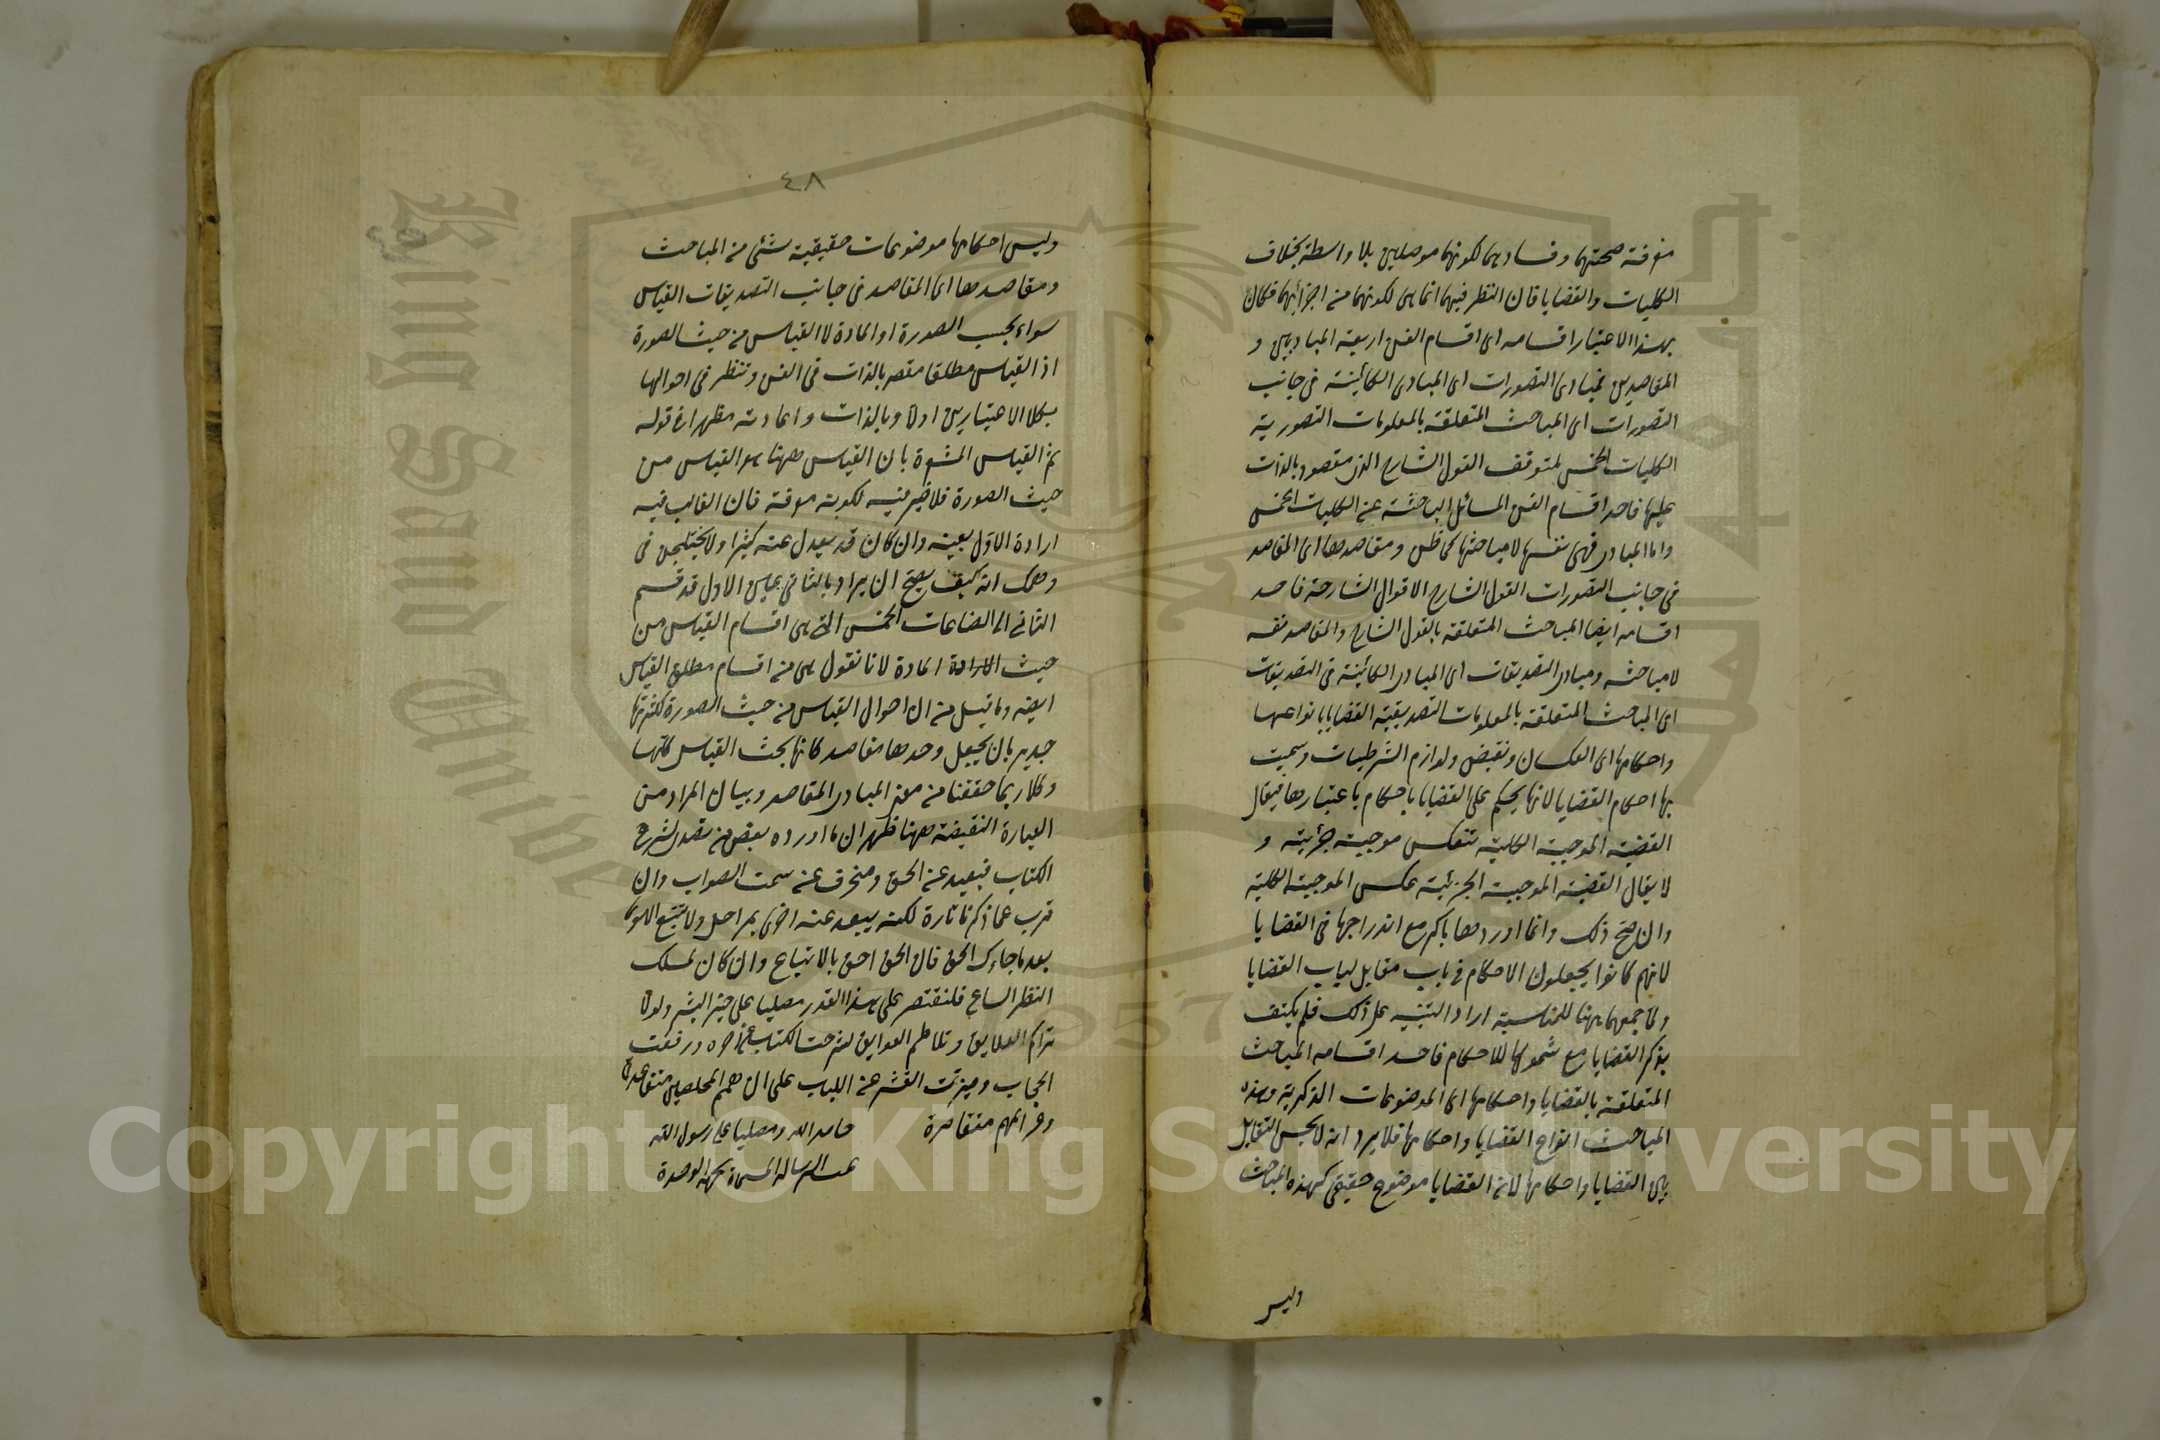 معرفة صحتهما وفسادهما لكونهما موصلين بلا واسطة بخلاف
الكليات والقضايا فان النظر فيهما انما هى لكونهما من اجزائهما فكان
بهذا الاعتبار اقسامه اى اقسام الفن اربعة المبادين و
المقاصدين فمبادى التصورات اى المبادى الكائينة فى جانب
التصورات اى المباحث المتعلقة بالمعلومات التصورية
الكليات الخمس لتوقف القول الشارح الذى مقصود بالذات
عليها فاحد اقسام الفن المسائل الباحثة عن الكليات الخمس
واما المبادى فهى نفسها لا مباحثها كما ظن ومقاصدها اى المقاصد
فى جانب التصورات القول الشارح الاقوال الشارحة فاحد
اقسامه ايضا المباحث المتعلقة بالقول الشارح والمقاصد نفسه
لا مباحثه ومبادى التصديقات اى المبادى الكائينة فى التصديقات
اى المباحث المتعلقة بالمعلومات التصديقية القضايا بانواعها
واحكامها اى العكسان ونقيض ولوازم الشرطيات وسميت
بها احكام القضايا لانها يحكم على القضايا باحكام باعتبارها فيقال
القضية الموجبة الكلية تنعكس موجبة جزئية و
لا يقال القضية الموجبة الجزئية عكس الموجبة الكلية
وان صح ذلك وانما اوردها مع اندراجها فى القضايا
لانهم كانوا يجعلون الاحكام فى باب مقابل لباب القضايا
ولما جمعهما ههنا للمناسبة اراد التنبيه على ذلك فلم يكتف
بذكر القضايا مع شمولها للاحكام فاحد اقسامه المباحث
المتعلقة بالقضايا واحكامها اى الموضوعات الذكرية وهذه
المباحث انواع القضايا واحكامها فلا يرد انه لا يحسن التقابل
بين القضايا واحكامها لان القضايا موضوع حقيقى لهذه المباحث
وليس
٤٨
وليس احكامها موضوعات حقيقية شئى من المباحث
ومقاصدها اى المقاصد فى جانب التصديقات القياس
سواء بحسب الصورة او المادة لا القياس من حيث الصورة
اذ القياس مطلقا مقصر بالذات فى الفن وتنظر فى احوالها
بكلا الاعتبارين اولا وبالذات واعادته مظهرا فى قوله
ثم القياس المشعرة بان القياس ههنا هو القياس من
حيث الصورة فلا ضير فيه لكونه معرفة فان الغالب فيه
ارادة الاول بعينه وان كان قد يعدل عنه كثيرا ولا يختلجن فى
وهمك انه كيف يصح ان يراد بالثانى عين الاول قد قسم
الثانى الى الصناعات الخمس التى هى اقسام القياس من
حيث المادة لانا نقول هى من اقسام مطلق القياس
ايضه وما قيل من ان احوال القياس من حيث الصورة لكثرتها
جدير بان يجعل وحدها مقاصد كانها بحث القياس كلها
وكلا ربما حققنا من معنى المبادى والمقاصد وبيان المراد من
العبارة النقيضة ههنا ظهر ان ما اورده بعض من تصدى لشرح
الكتاب فبعيد عن الحق ومنحرف عن سمت الصواب وان
قرب عما ذكرنا تارة لكنه يبعد عنه اخرى بمراحل ولا تتبع الاهواء
بعد ما جاءك الحق فان الحق احق بالاتباع وان كان لمسلك
النظر الساعى فلنقتصر على هذا القدر مصليا على خير البشر ولولا
تراكم العلايق وتلاطم العوايق لشرحت الكتاب عن اخره ورفعت
الحجاب وميزت القشر عن اللباب على ان همم المحصلين متقاعدة
وعزائمهم متقاصرة حامدا لله ومصليا على رسول الله
تمت الرسالة المسماة بجهة الوحدة
Copyright © King Saud University
King Saud University
1957